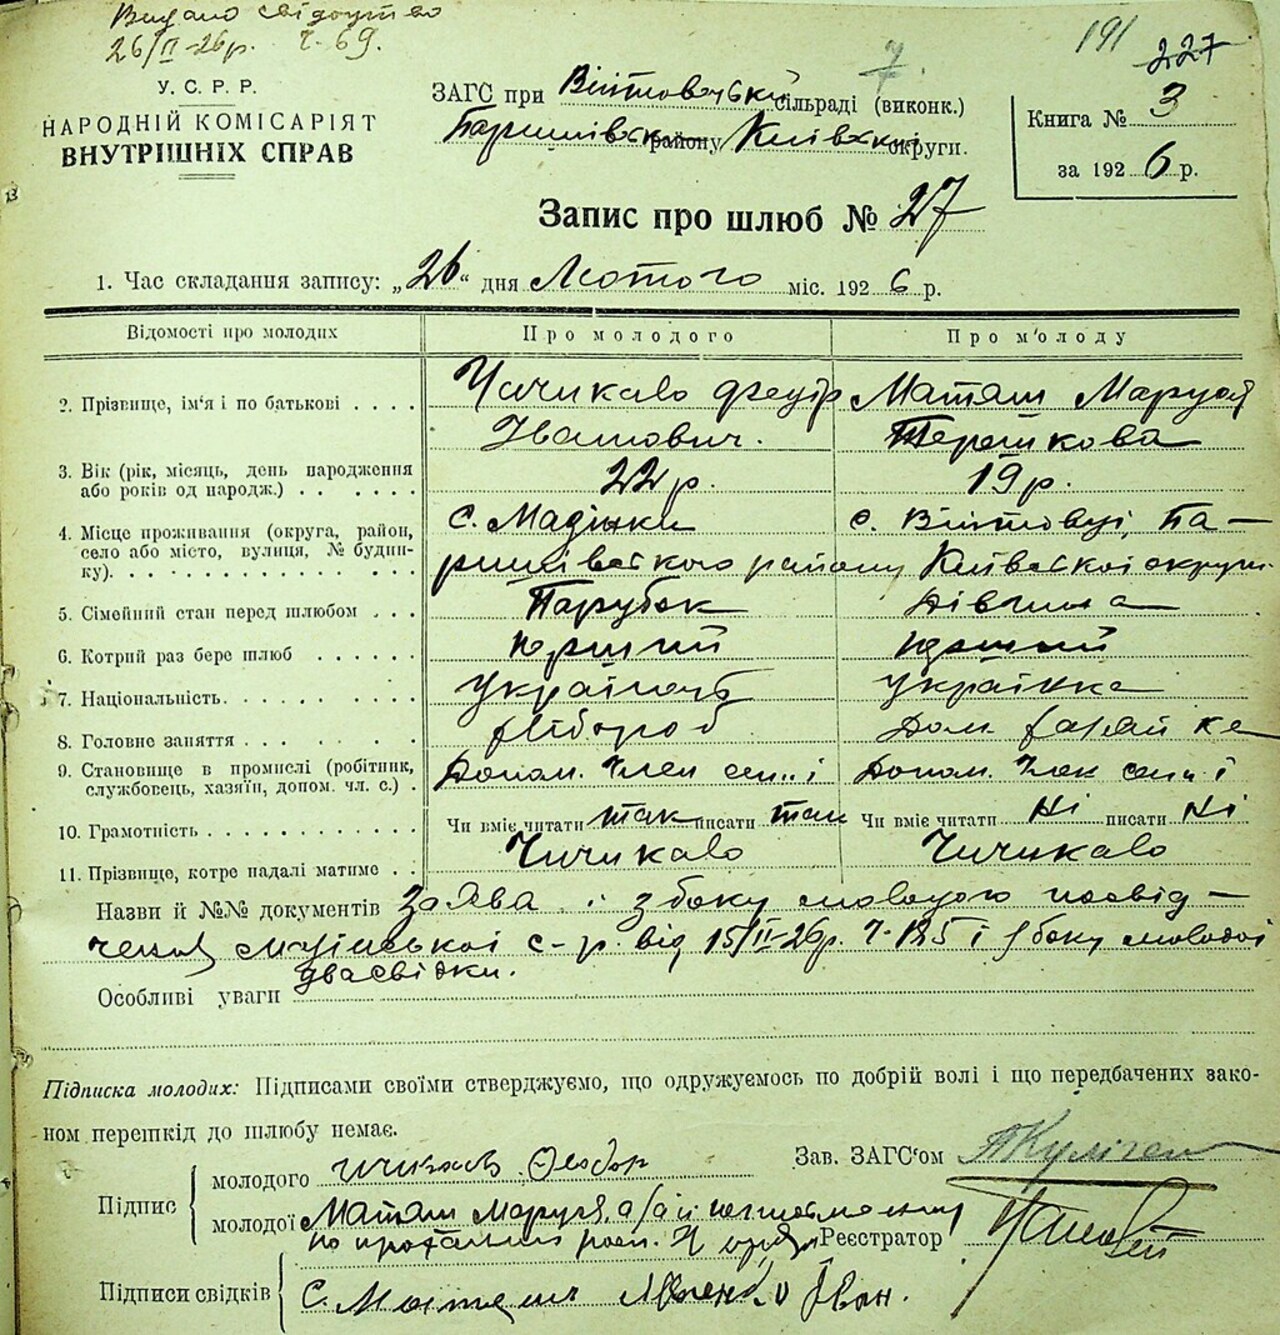 Видано свідоцтво
26/II-26р. Ч. 69.
191 227
7
У. С. Р. Р.
НАРОДНІЙ КОМІСАРІЯТ
ВНУТРІШНІХ СПРАВ
ЗАГС при Війтовецькій сільраді (виконк.)
Баришівськ району Київської округи.
Книга № 3
за 1926 р.
Запис про шлюб № 27
1. Час складання запису: „26“ дня Лютого міс. 1926 р.
Відомості про молодих Про молодого Про молоду
2. Прізвище, ім'я і по батькові . . . . Чичикало Федір Матяш Маруся
Іванович. Терешкова
3. Вік (рік, місяць, день народження
або років од народж.) . . . . . . 22 р. 19 р.
4. Місце проживання (округа, район, с. Мадінки с. Війтовці, Ба-
село або місто, вулиця, № будин-
ку). . . . . . . . . . . . . ришівського району Київської округи.
5. Сімейний стан перед шлюбом . . . Парубок Дівчина
6. Котрий раз бере шлюб . . . . . . Перший Перший
7. Національність. . . . . . . . . . Українець Українка
8. Головне заняття . . . . . . . . . Хлібороб Дом. хазяйка
9. Становище в промислі (робітник, Допом. Член сем'ї Допом. Член сем'ї
службовець, хазяїн, допом. чл. с.) .
10. Грамотність . . . . . . . . . . . . Чи вміє читати так писати так Чи вміє читати Ні писати Ні
11. Прізвище, котре надалі матиме . . Чичикало Чичикало
Назви й №№ документів Заява і з боку молодого посвід-
чення с-р. від 15/II-26р. Ч-125 і з боку молодої
два свідки.
Особливі уваги
Підписка молодих: Підписами своїми стверджуємо, що одружуємось по добрій волі і що передбачених зако-
ном перешкід до шлюбу немає.
Підпис
молодого Чичикало Федор
Зав. ЗАГС'ом
молодої Матяш Маруся, а за її неписьменну
по проханню розп.
Реєстратор
Підписи свідків С. Матяш Іван.